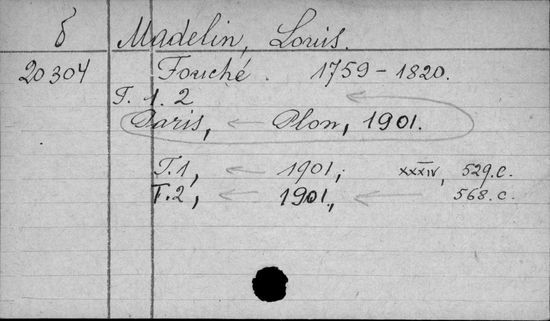 б Madelin, Louis.
20304 Fouché. 1759-1820.
T. 1. 2
Paris, ← Plon, 1901.
T.1, ← 1901, xxxiv, 529.c.
T.2, ← 1901., ← 568.c.